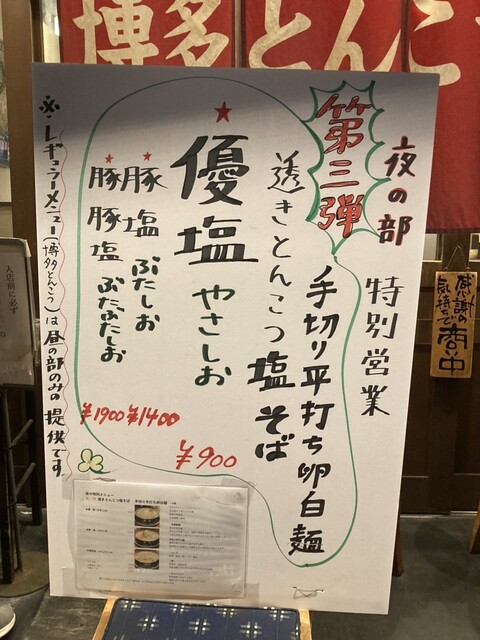 博多とんこ
夜の部
特別営業
第三弾
手切り平打ち卵白麺
透きとんこつ塩そば
★
優塩 やさしお
¥900
★
豚塩 ぶたしお
¥1400
★
豚豚塩 ぶたぶたしお
¥1900
※レギュラーメニュー(博多とんこつ)は昼の部のみの提供です
感謝の
気持ちで
商い中
入店前に必ず